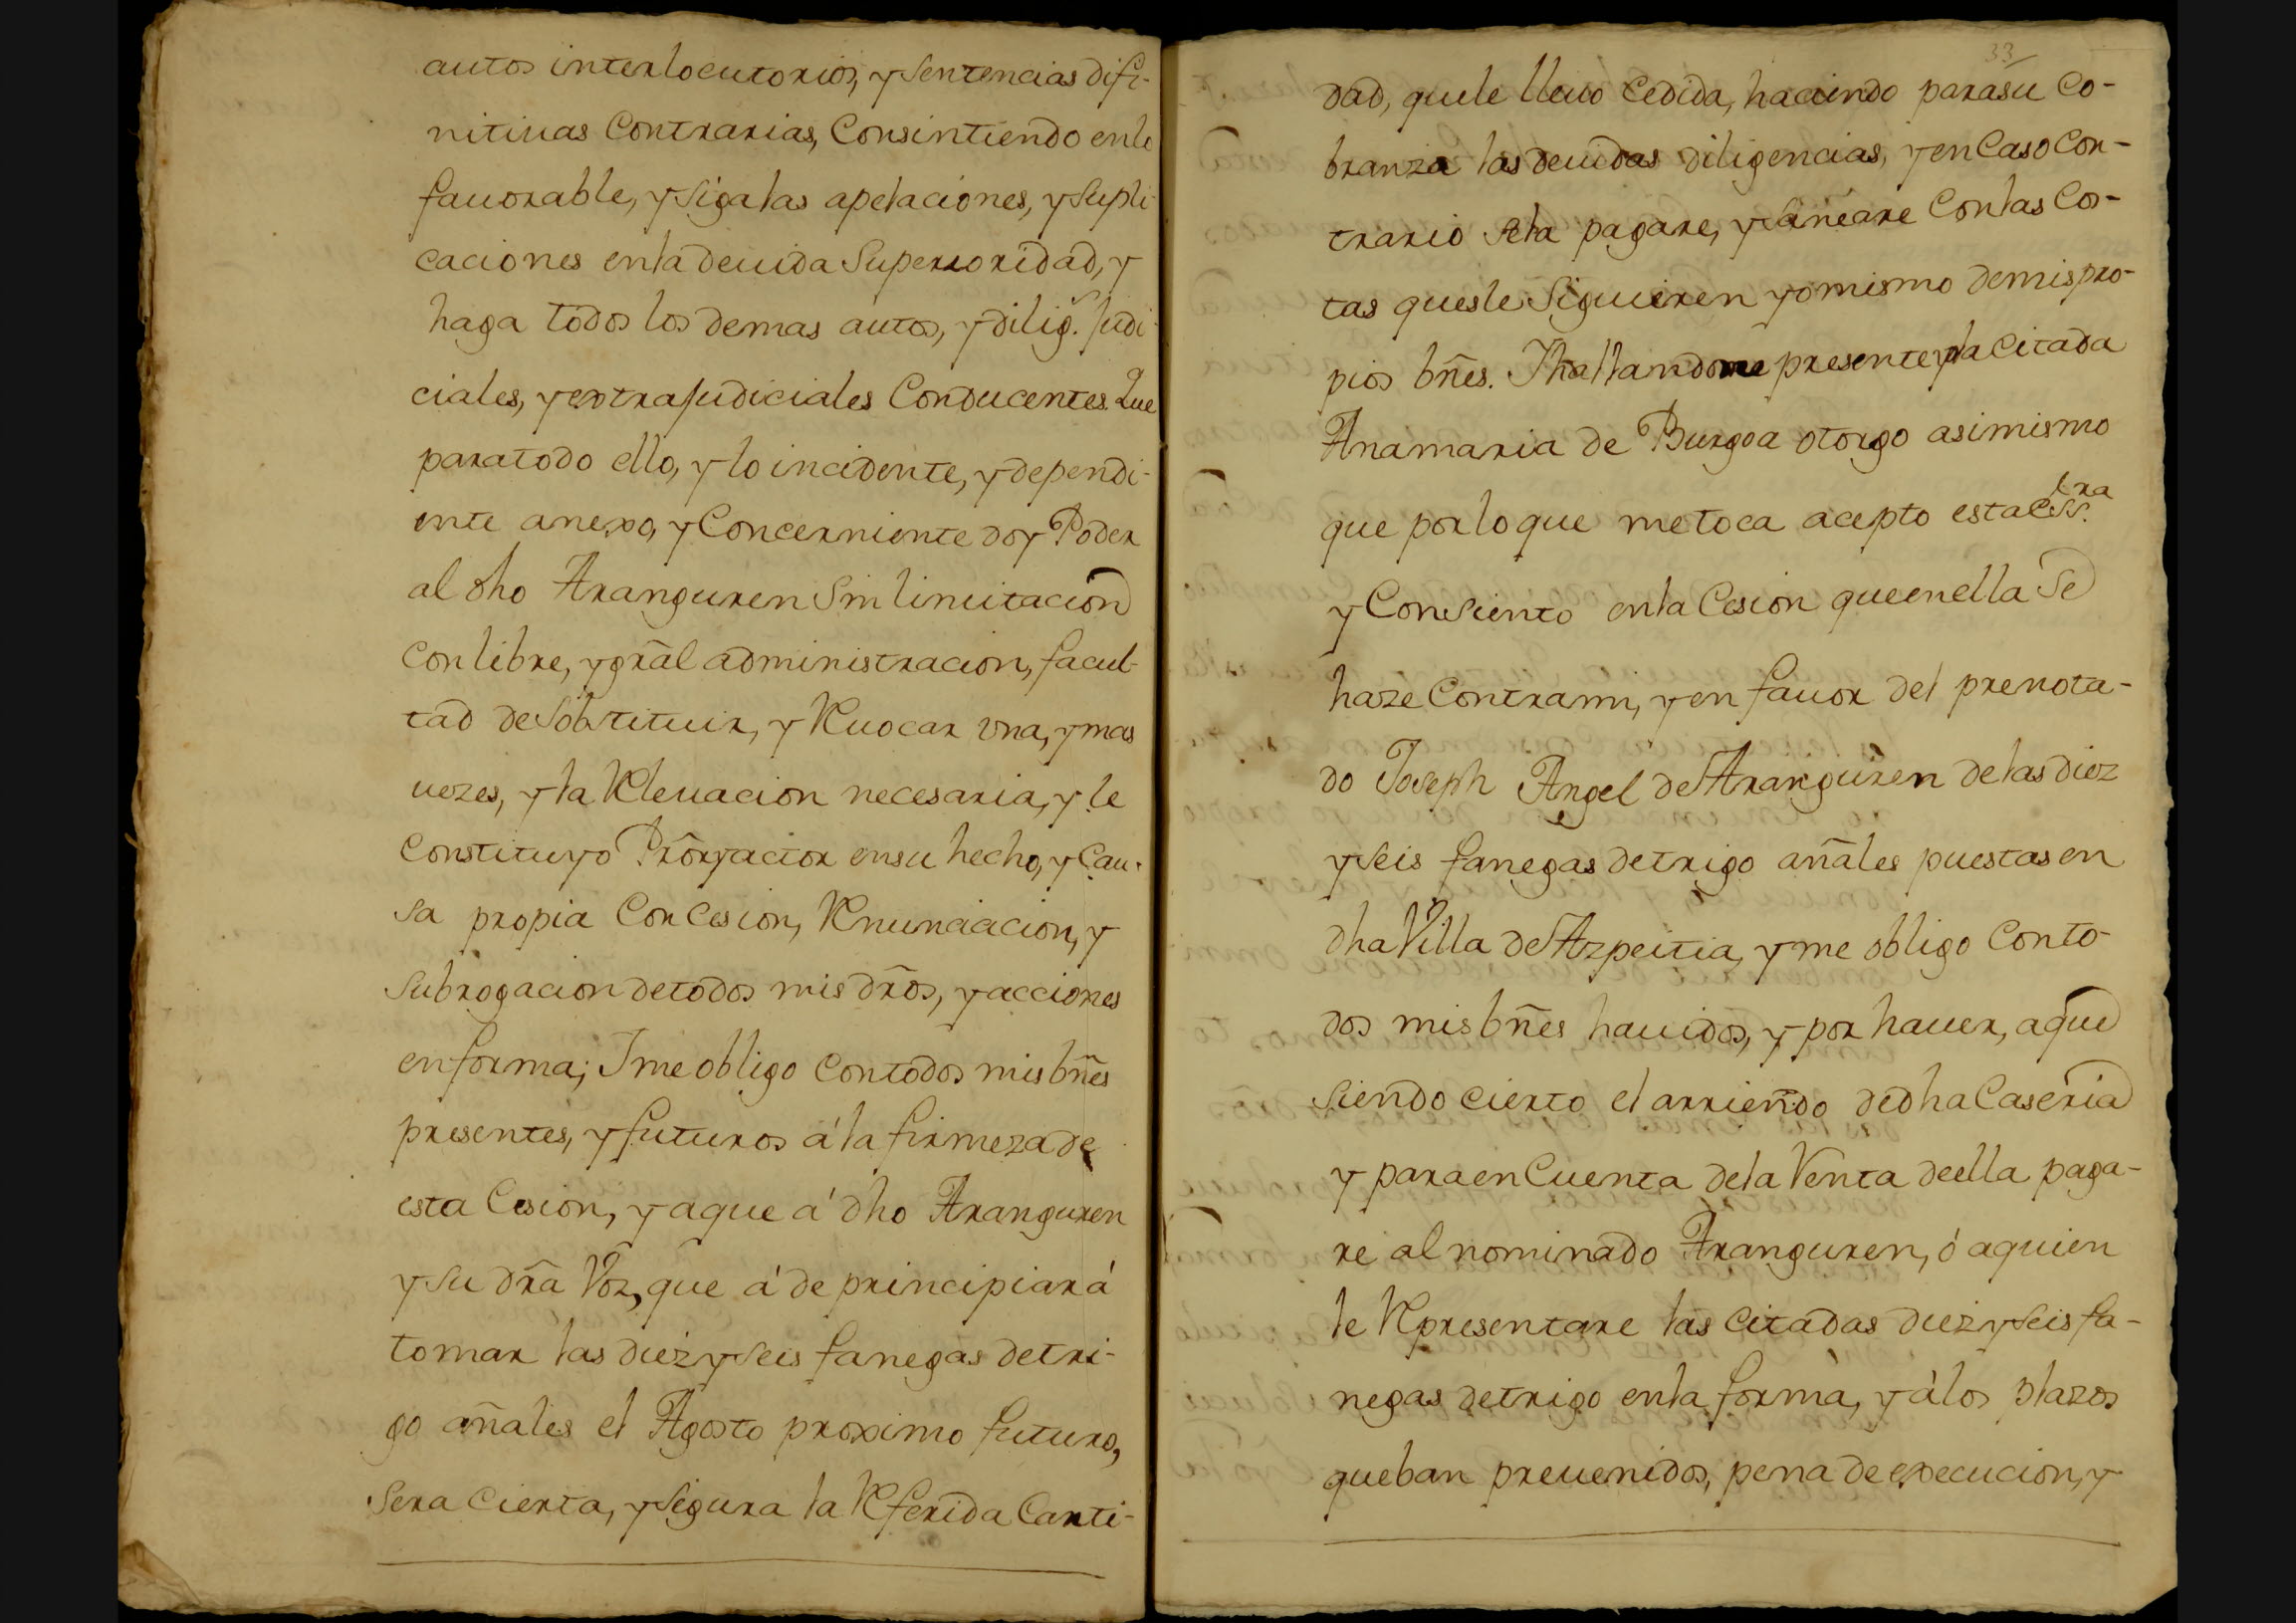 autos interlocutorios, y Sentencias difi-
nitiuas Contrarias, Consintiendo en lo
fauorable, y Siga las apelaciones, y Supli-
caciones en la deuida Superioridad, y
haga todos los demas autos, y dilig.s Judi-
ciales, y extraJudiciales Conducentes. Que
para todo ello, y lo incidente, y dependi-
ente anexo, y Concerniente doy Poder
al dho Aranguren Sin limitacion
Con libre, y grãl administracion, facul-
tad de Sobstituir, y Reuocar vna, y mas
uezes, y la Releuacion necesaria, y le
Constituyo Prõr y actor en su hecho, y Cau-
sa propia Con Cesion, Renunciacion, y
Subrogacion de todos mis dr̃os, y acciones
en forma; I me obligo Con todos mis bñes
presentes, y futuros á la firmeza de
esta Cesion, y a que á dho Aranguren
y Su dr̃a Voz, que á de principiar á
tomar las diez y Seis fanegas de tri-
go añales el Agosto proximo futuro,
Sera Cierta, y Segura la Referida Canti-
33
dad, que le lleuo Cedida, haciendo para su Co-
branza las deuidas diligencias, y en Caso Con-
trario Se la pagare, y Saneare Con las Cos-
tas que se le Siguieren yo mismo de mis pro-
pios bñes. I hallandome presente yo la Citada
Ana maria de Burgoa otorgo asimismo
que por lo que me toca acepto esta ess.tra
y Consiento en la Cesion que en ella Se
haze Contra mi, y en fauor del prenota-
do Joseph Angel de Aranguren de las diez
y Seis fanegas de trigo añales puestas en
dha Villa de Azpeitia, y me obligo Con to-
dos mis bñes hauidos, y por hauer, a que
Siendo cierto el arriendo de dha Caseria
y para en Cuenta de la Venta de ella paga-
re al nominado Aranguren, ó a quien
le Representare las Citadas diez y Seis fa-
negas de trigo en la forma, y á los plazos
que ban preuenidos, pena de execucion, y